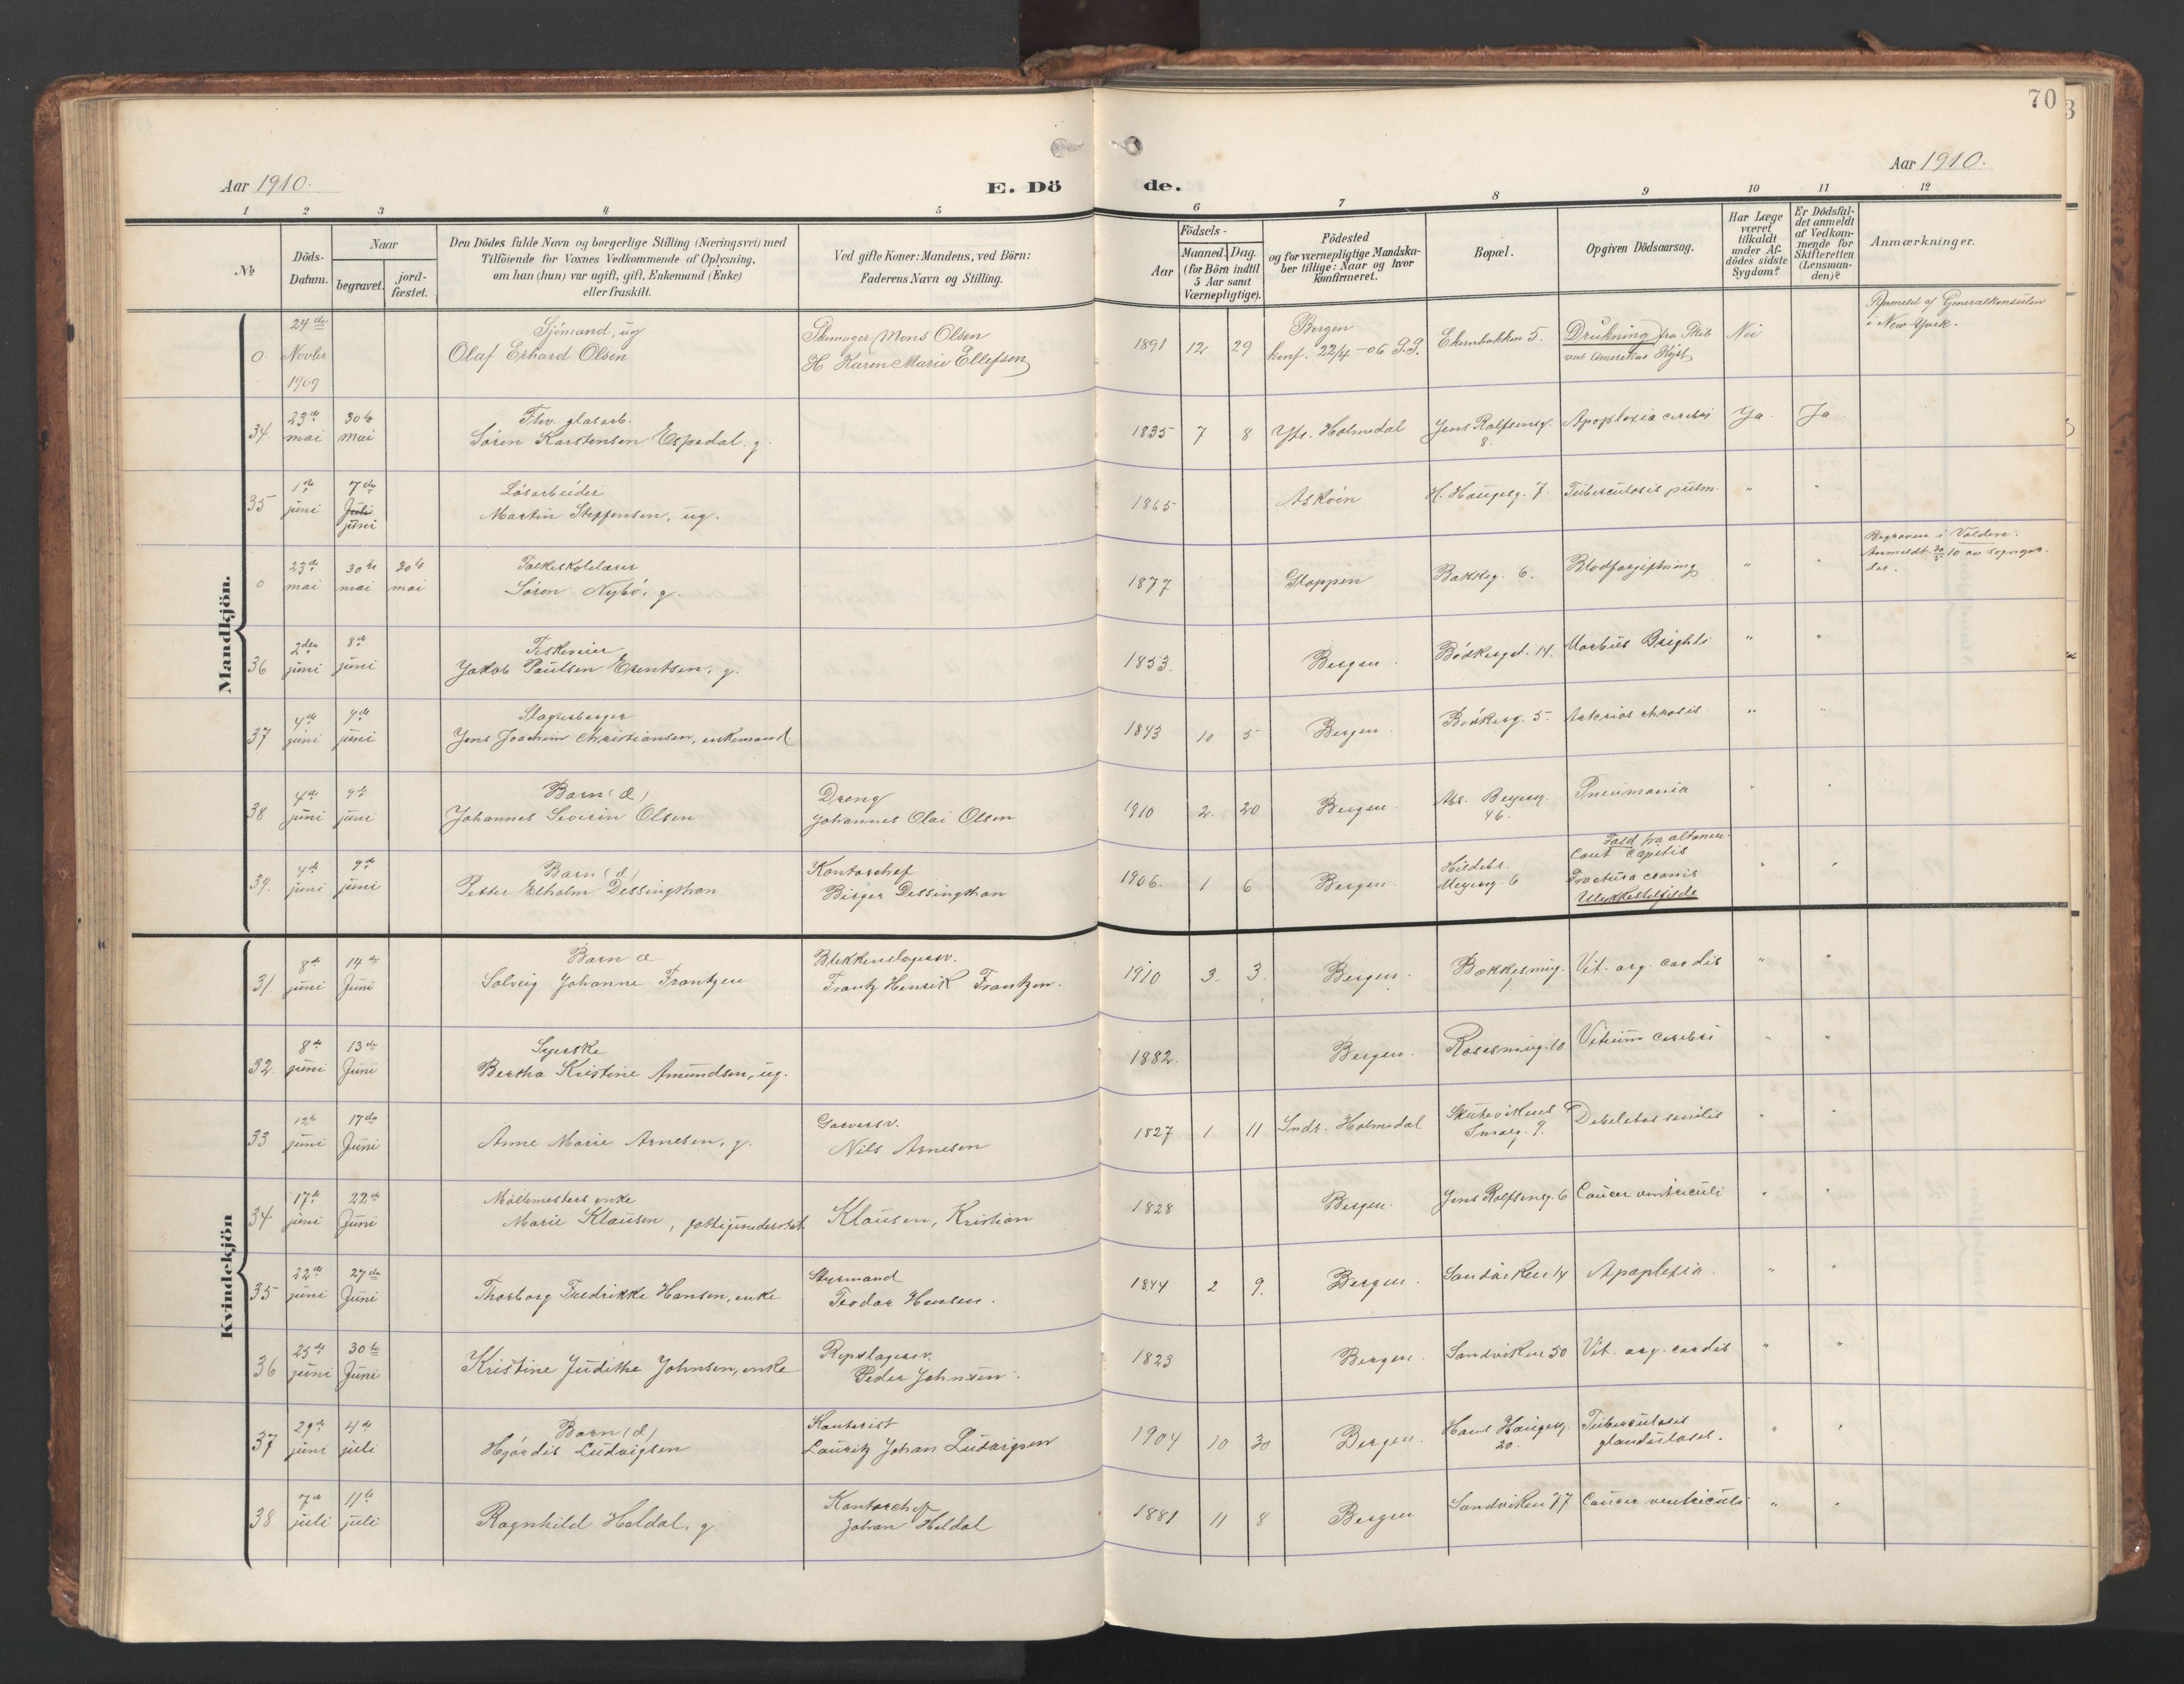 70
Aar 1910.
E. Dö
de.
Aar 1910.
1 2 3 4 5 6 7 8 9 10 11 12
No
Döds-Datum.
Naar
begravet.
jordfæstet.
Den Dödes fulde Navn og borgerlige Stilling (Næringsvei) med
Tilföiende for Voxnes Vedkommende af Oplysning,
om han (hun) var ugift, gift, Enkemand (Enke)
eller fraskilt.
Ved gifte Koner: Mandens, ved Börn:
Faderens Navn og Stilling.
Födsels-
Aar
Maaned. Dag.
(for Börn indtil
5 Aar samt
Værnepligtige).
Födested
og for værnepligtige Mandska-
ber tillige: Naar og hvor
konfirmeret.
Bopæl.
Opgiven Dödsaarsag.
Har Læge
været
tilkaldt
under Af-
dödes sidste
Sygdom?
Er Dödsfal-
det anmeldt
af Vedkom-
mende for
Skifteretten
(Lensman-
den)?
Anmærkninger.
Mandkjön.
0. 24de Novbr 1909
Sjömand, ug
Olaf Erhard Olsen
Skomager Mons Olsen
H Karen Marie Ellefsen
1891 12 29
Bergen
konf. 22/4 - 06
5.
Drukning fra Skib
ved Amerikas Kyst
Nei
Anmeldt af Generalkonsulen
i New-York.
34. 23de mai 30te mai
Fhv. glasarb.
Sören Karstensen Espedal, g.
1835 7 8 Ytr. Holmedal
Jens Rolfsensg. 8.
Apoplexia cerebri Ja. Ja
35 1ste juni 7de Juli juni
Lösarbeider
Martin Steffensen, ug.
1865 Asköen H. Haugesg. 7. Tuberculosis pulm. " "
0 23de mai 30te mai 30te mai
Folkeskolelærer
Sören Nybö, g.
1877 Gloppen Bakkeg. 6. Blodforgiftning " "
Begraven i Volden:
Anmeldt 30/5 10 av sogneprest.
36 2den juni 8de juni
Fiskeveier
Jakob Paulsen Erentsen, g.
1853. Bergen. Bödkergt. 14. Morbus Brighti " "
37 4de juni 9de juni
Slagterborger
Jens Joachim Christiansen, enkemand.
1843 10 5 Bergen. Bödkerg. 5. " "
38 4de juni 9de juni
Barn (æ)
Johannes Severin Olsen
Dreng
Johannes Olai Olsen
1910 2. 20 Bergen. 46. Pneumonia " "
39. 4de juni 9de juni
Barn (æ)
Petter Elholm Dessingthon
Kontorchef
Birger Dessingthon
1906. 1 6 Bergen.
Hildebr.
Meyersg. 6
Fald fra altanen.
Cont capitis
Fractura cranis
Ulykkestilfælde
" "
Kvindekjön
31. 8de juni 14de Juni
Barn æ
Solveig Johanne Frantzen
Blikkenslagersv.
Frantz Henrik Frantzen.
1910 3. 3. Bergen. Bakkesmug. Vit. org. cordis " "
32. 8de juni 13de Juni
Syerske
Bertha Kristine Amundsen, ug.
1882. Bergen. Rosesmug. 10 Vitium cerebri " "
33 12te juni 17de Juni
Anne Marie Arnesen, g.
Garversv.
Nils Arnesen
1827 1 11 Sndr. Holmedal
Skutevikens
Smalg. 9.
Debelitas senilis " "
34. 17de juni 22de Juni
Möllemesters enke
Marie Klausen, fattigunderstöt.
Klausen, Kristian
1828 Bergen. Jens Rolfsensg. 6 Cancer ventriculi " "
35 22de juni 27de Juni
Thorborg Fredrikke Hansen, enke
Styrmand
Teodor Hansen.
1844 2 9. Bergen. Sandviken 14 Apoplexia. " "
36 25de juni 30te Juni
Kristine Judithe Johnsen, enke
Repslagersv.
Peder Johnsen.
1823 Bergen. Sandviken 50 Vit. org. cordis " "
37 29de juni 4de juli
Barn (æ)
Hjördis Ludvigsen
Kontorist
Lauritz Johan Ludvigsen
1904 10 30 Bergen.
Hans Haugesg.
20.
Tuberculosis
glandulosis.
" "
38 7de juli 11te juli
Ragnhild Heldal, g.
Kontorchef
Johan Heldal
1881 11 8 Bergen Sandviken 77 Cancer ventriculi " "